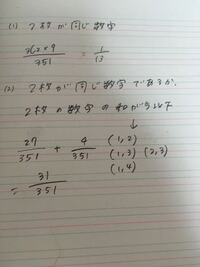 (1) 2枚が同じ数字
3C2×9/351 = 1/13
(2) 2枚が同じ数字であるか、
2枚の数字の和が5以下
↓
27/351 + 4/351 (1,2)
(1,3) (2,3)
(1,4)
= 31/351